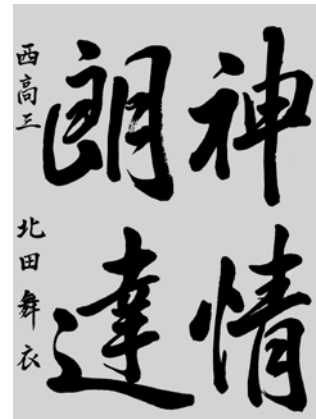 神情
朗達
西高三 北田舞衣